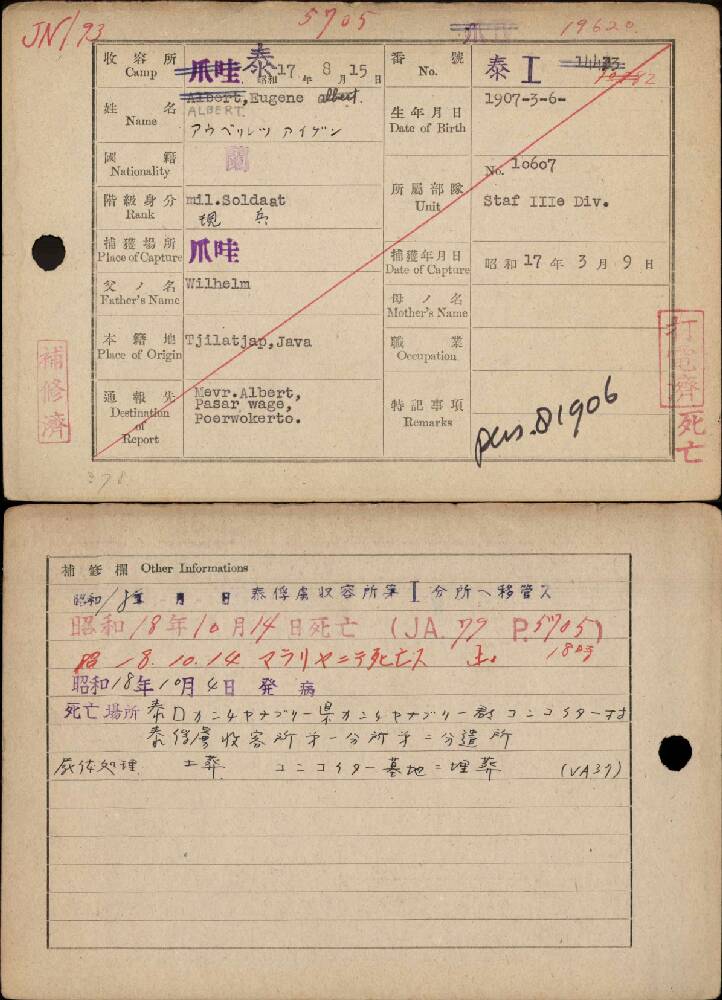 JN/93
5705
19620
爪哇
收容所
Camp
爪哇 泰
昭和 17 年 8 月 15 日
番號
No.
泰 I
姓名
Name
Albert, Eugene albert.
ALBERT.
生年月日
Date of Birth
1907-3-6-
國籍
Nationality
蘭
所屬部隊
Unit
No. 10607
Staf IIIe Div.
階級身分
Rank
mil.Soldaat
現 兵
捕獲場所
Place of Capture
爪哇
捕獲年月日
Date of Capture
昭和 17 年 3 月 9 日
父ノ名
Father's Name
Wilhelm
母ノ名
Mother's Name
本籍地
Place of Origin
Tjilatjap, Java
職業
Occupation
通報先
Destination of Report
Mevr.Albert,
Pasar wage,
Poerwokerto.
特記事項
Remarks
pus.81906
補修濟
打電濟
死亡
378
補修欄 Other Informations
昭和 18 年 月 日 泰俘虜收容所第 I 分所ヘ移管ス
昭和18年10月14日死亡 (JA. 79 P.5705)
昭 18.10.14 マラリヤニテ死亡ス
昭和18年10月4日 発病
死亡場所 泰国カンチャナブリー県カンチャナブリー郡コンコイター村
泰俘虜收容所第一分所第二分遣所
屍体処理 土葬 コンコイター墓地ニ埋葬 (VA37)